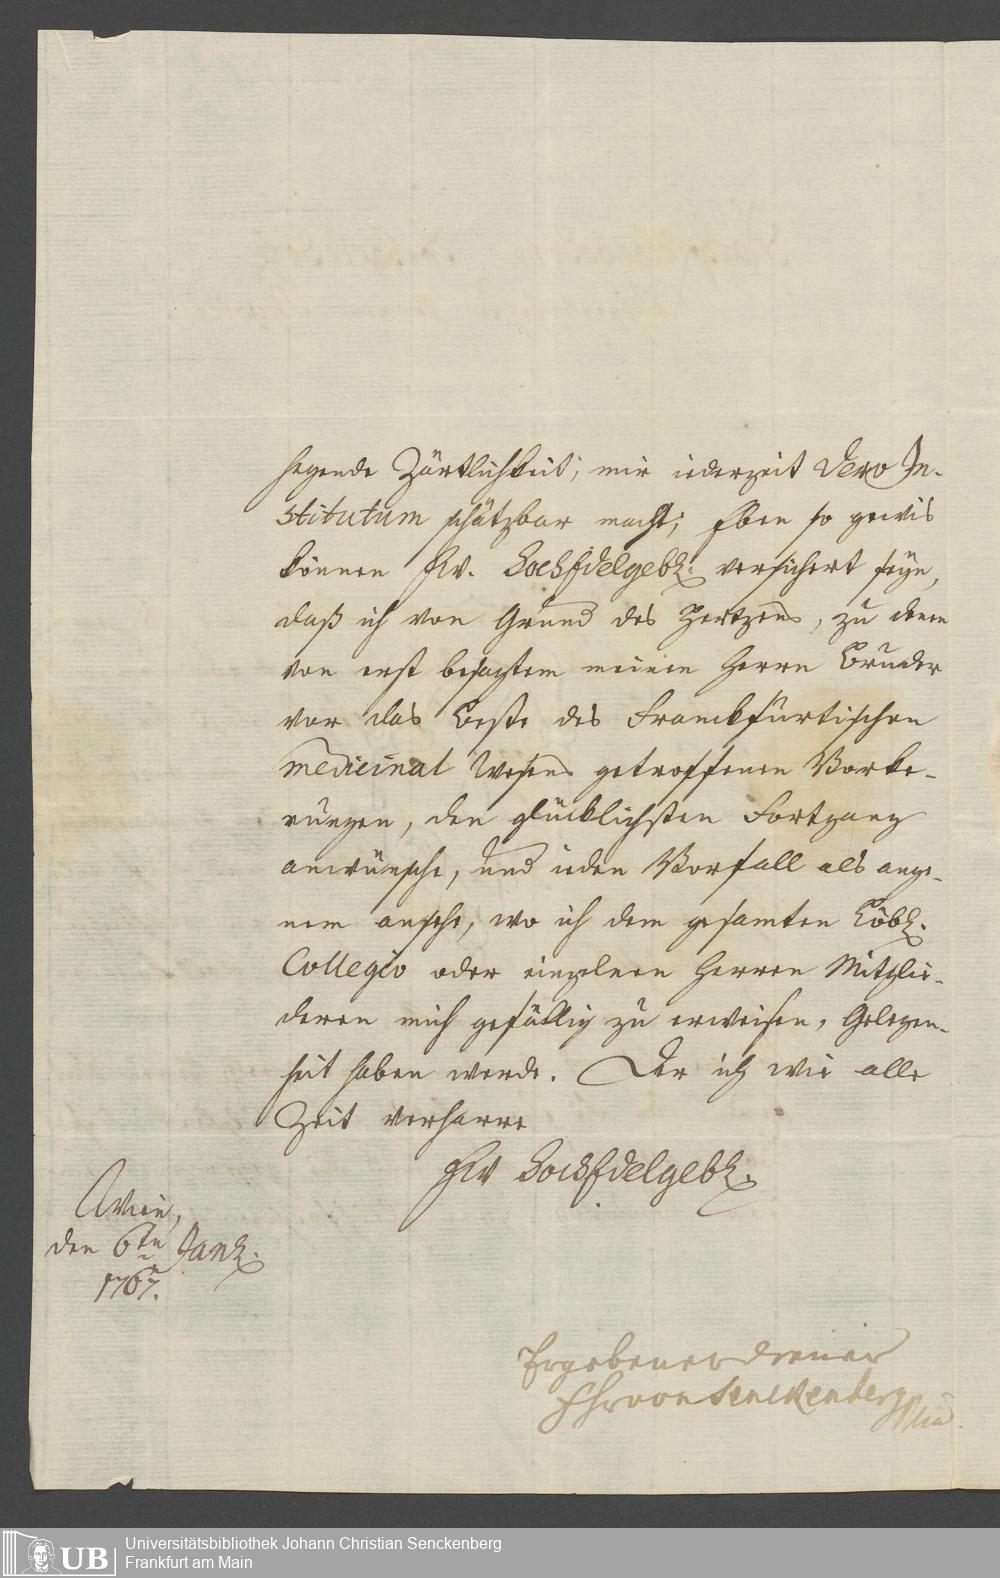 hegende Zärtlichkeit, mir iederzeit Dero In-
stitutum schätzbar macht; Eben so gewis
können Ew. HochEdelgeb. versichert seyn,
daß ich von Grund des Hertzens, zu denen
von erst besagtem meinem Herrn Bruder
vor das Beste des Franckfurtischen
Medicinal Wesens getroffenen Vorke-
rungen, den glücklichsten Fortgang
anwünsche, und ieden Vorfall als ange-
nem ansehe, wo ich dem gesamten Löbl.
Collegio oder einzelnen Herren Mitglie-
deren mich gefällig zu erweisen, Gelegen-
heit haben werde. Der ich wie alle
Zeit verharre
Ew HochEdelgeb.
Wien,
den 6ten Jan.
1767.
Ergebener Diener
von Senckenberg
Universitätsbibliothek Johann Christian Senckenberg
Frankfurt am Main
UB